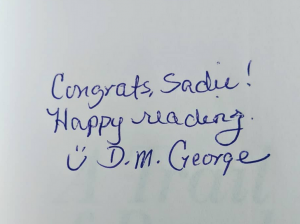 Congrats, Sadie!
Happy reading.
Ü D.M. George